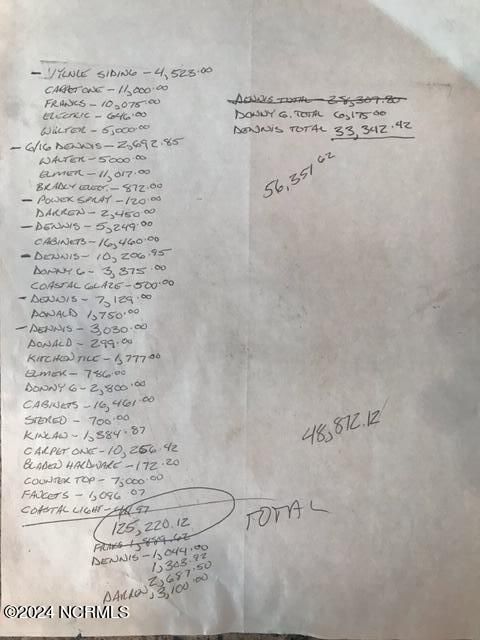 - VYLNLE SIDING - 4,523.00
CARPET ONE - 11,000.00
FRANKS - 10,075.00
ELECTRIC - 646.00
WALTER - 5,000.00
- 6/16 DENNIS - 2,692.85
WALTER - 5000.00
ELMER - 11,017.00
BRADLY ELECT. - 872.00
- POWER SPRAY - 120.00
DARREN - 2,450.00
- DENNIS - 5,249.00
CABINETS - 16,460.00
- DENNIS - 10,206.95
DONNY G - 3,375.00
COASTAL GLAZE - 500.00
- DENNIS - 7,129.00
DONALD 1,750.00
- DENNIS - 3,030.00
DONALD - 299.00
KITCHEN TILE - 1,777.00
ELMER - 786.00
DONNY G - 2,800.00
CABINETS - 16,461.00
STEREO - 700.00
KINLAW - 1,384.87
CARPET ONE - 10,256.42
BLADEN HARDWARE - 172.20
COUNTER TOP - 7,000.00
FAUCETS - 1,096.07
COASTAL LIGHT -
125,220.12
TOTAL
1,889.62
DENNIS - 1,044.00
1,303.92
2,687.50
DARREN, 3,100.00
DENNIS TOTAL - 28,309.80
DONNY G. TOTAL 6,175.00
DENNIS TOTAL 33,342.42
56,351.62
48,872.12
©2024 NCRMLS